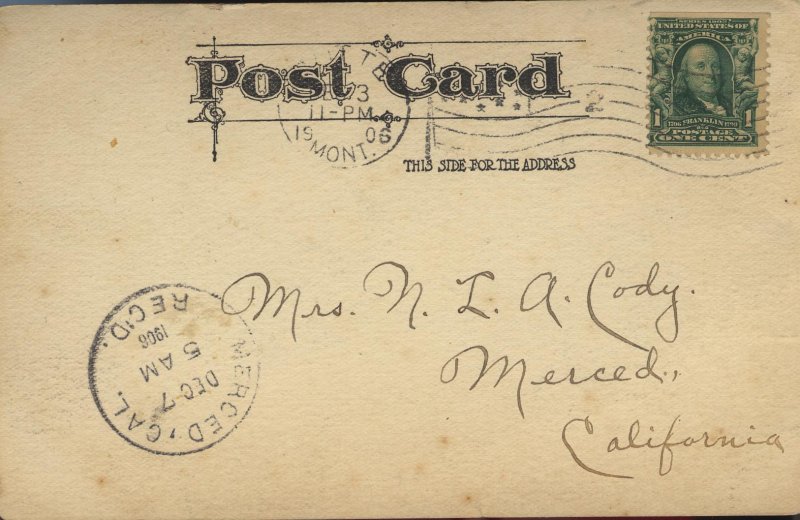 Post Card
11-PM
1906
MONT.
THIS SIDE FOR THE ADDRESS
2
SERIES 1902
UNITED STATES OF
AMERICA
1706 FRANKLIN 1790
1 POSTAGE 1
ONE CENT
Mrs. N. L. A. Cody.
Merced,
California
MERCED, CAL.
DEC 7
5 AM
1906
REC'D.